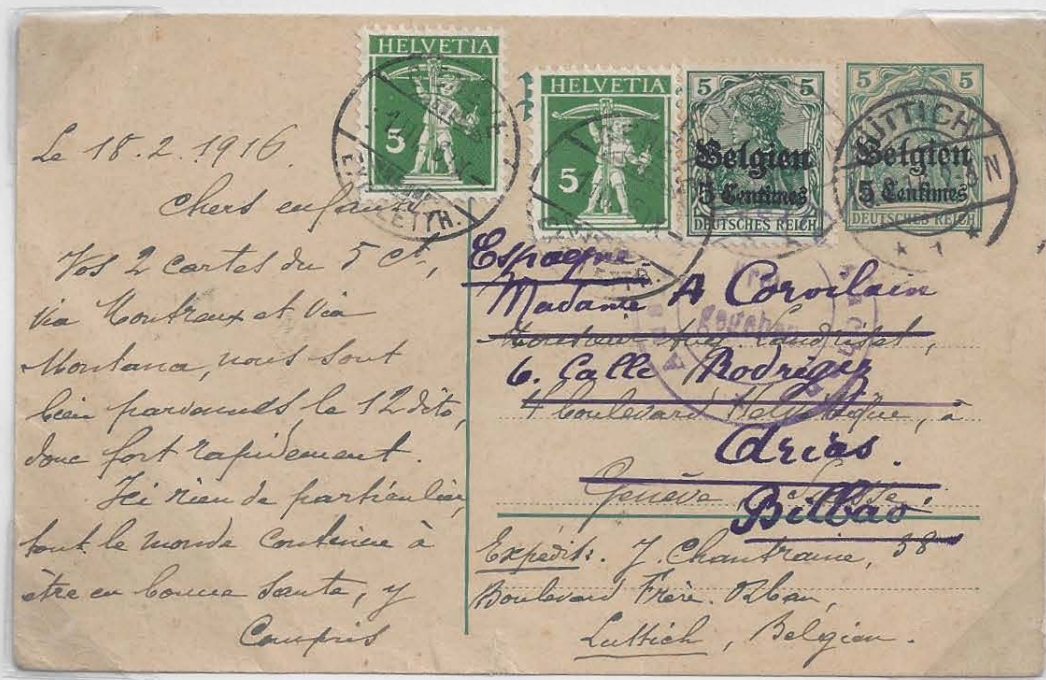 HELVETIA
5
HELVETIA
5
5 5
Belgien
5 Centimes
DEUTSCHES REICH
5 5
Belgien
5 Centimes
DEUTSCHES REICH
LÜTTICH
Le 18.2.1916.
Chers enfants
Vos 2 cartes du 5 ct,
via Montreux et via
Montana, nous sont
bien parvenues le 12 dito,
donc fort rapidement.
Ici rien de particulier,
tout le monde continue à
être en bonne santé, y
Compris
Espagne
Madame A Corvilain
Monsieur
6. Calle Rodriguez
4 boulevard Helvétique, à
Arias.
Genève Suisse.
Bilbao
Expédit: J. Chantraine, 38
Boulevard Frère-Orban,
Luttich, Belgien.